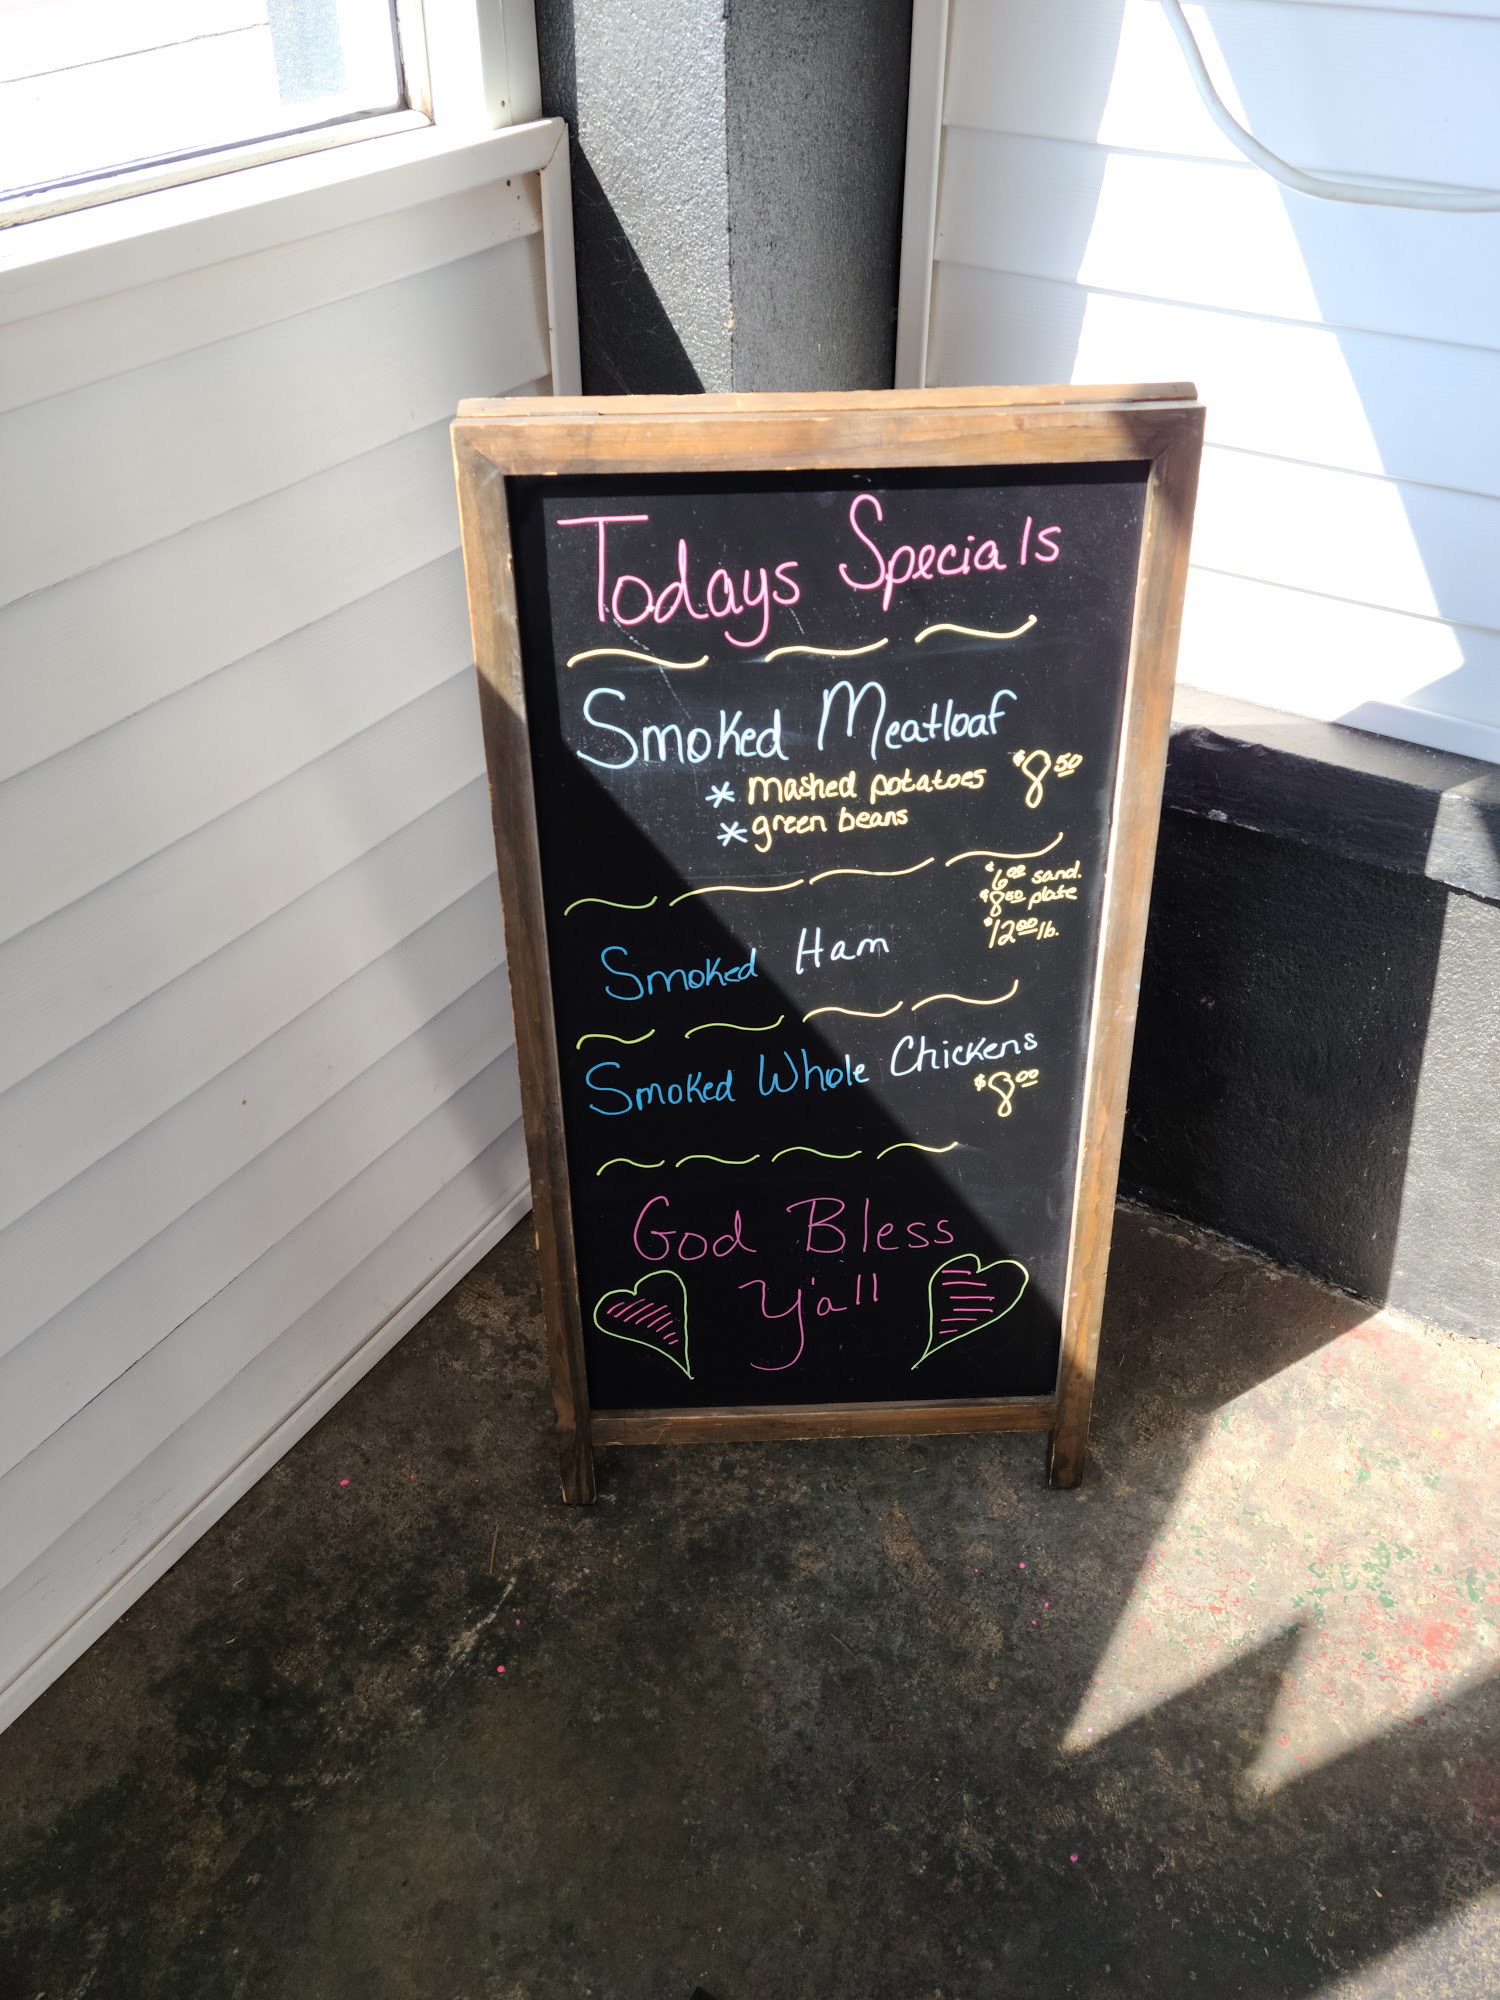 Todays Specials
Smoked Meatloaf
* mashed potatoes $8.50
* green beans
$6.00 sand.
$8.50 plate
$12.00 lb.
Smoked Ham
Smoked Whole Chickens
$8.00
God Bless
Y'all